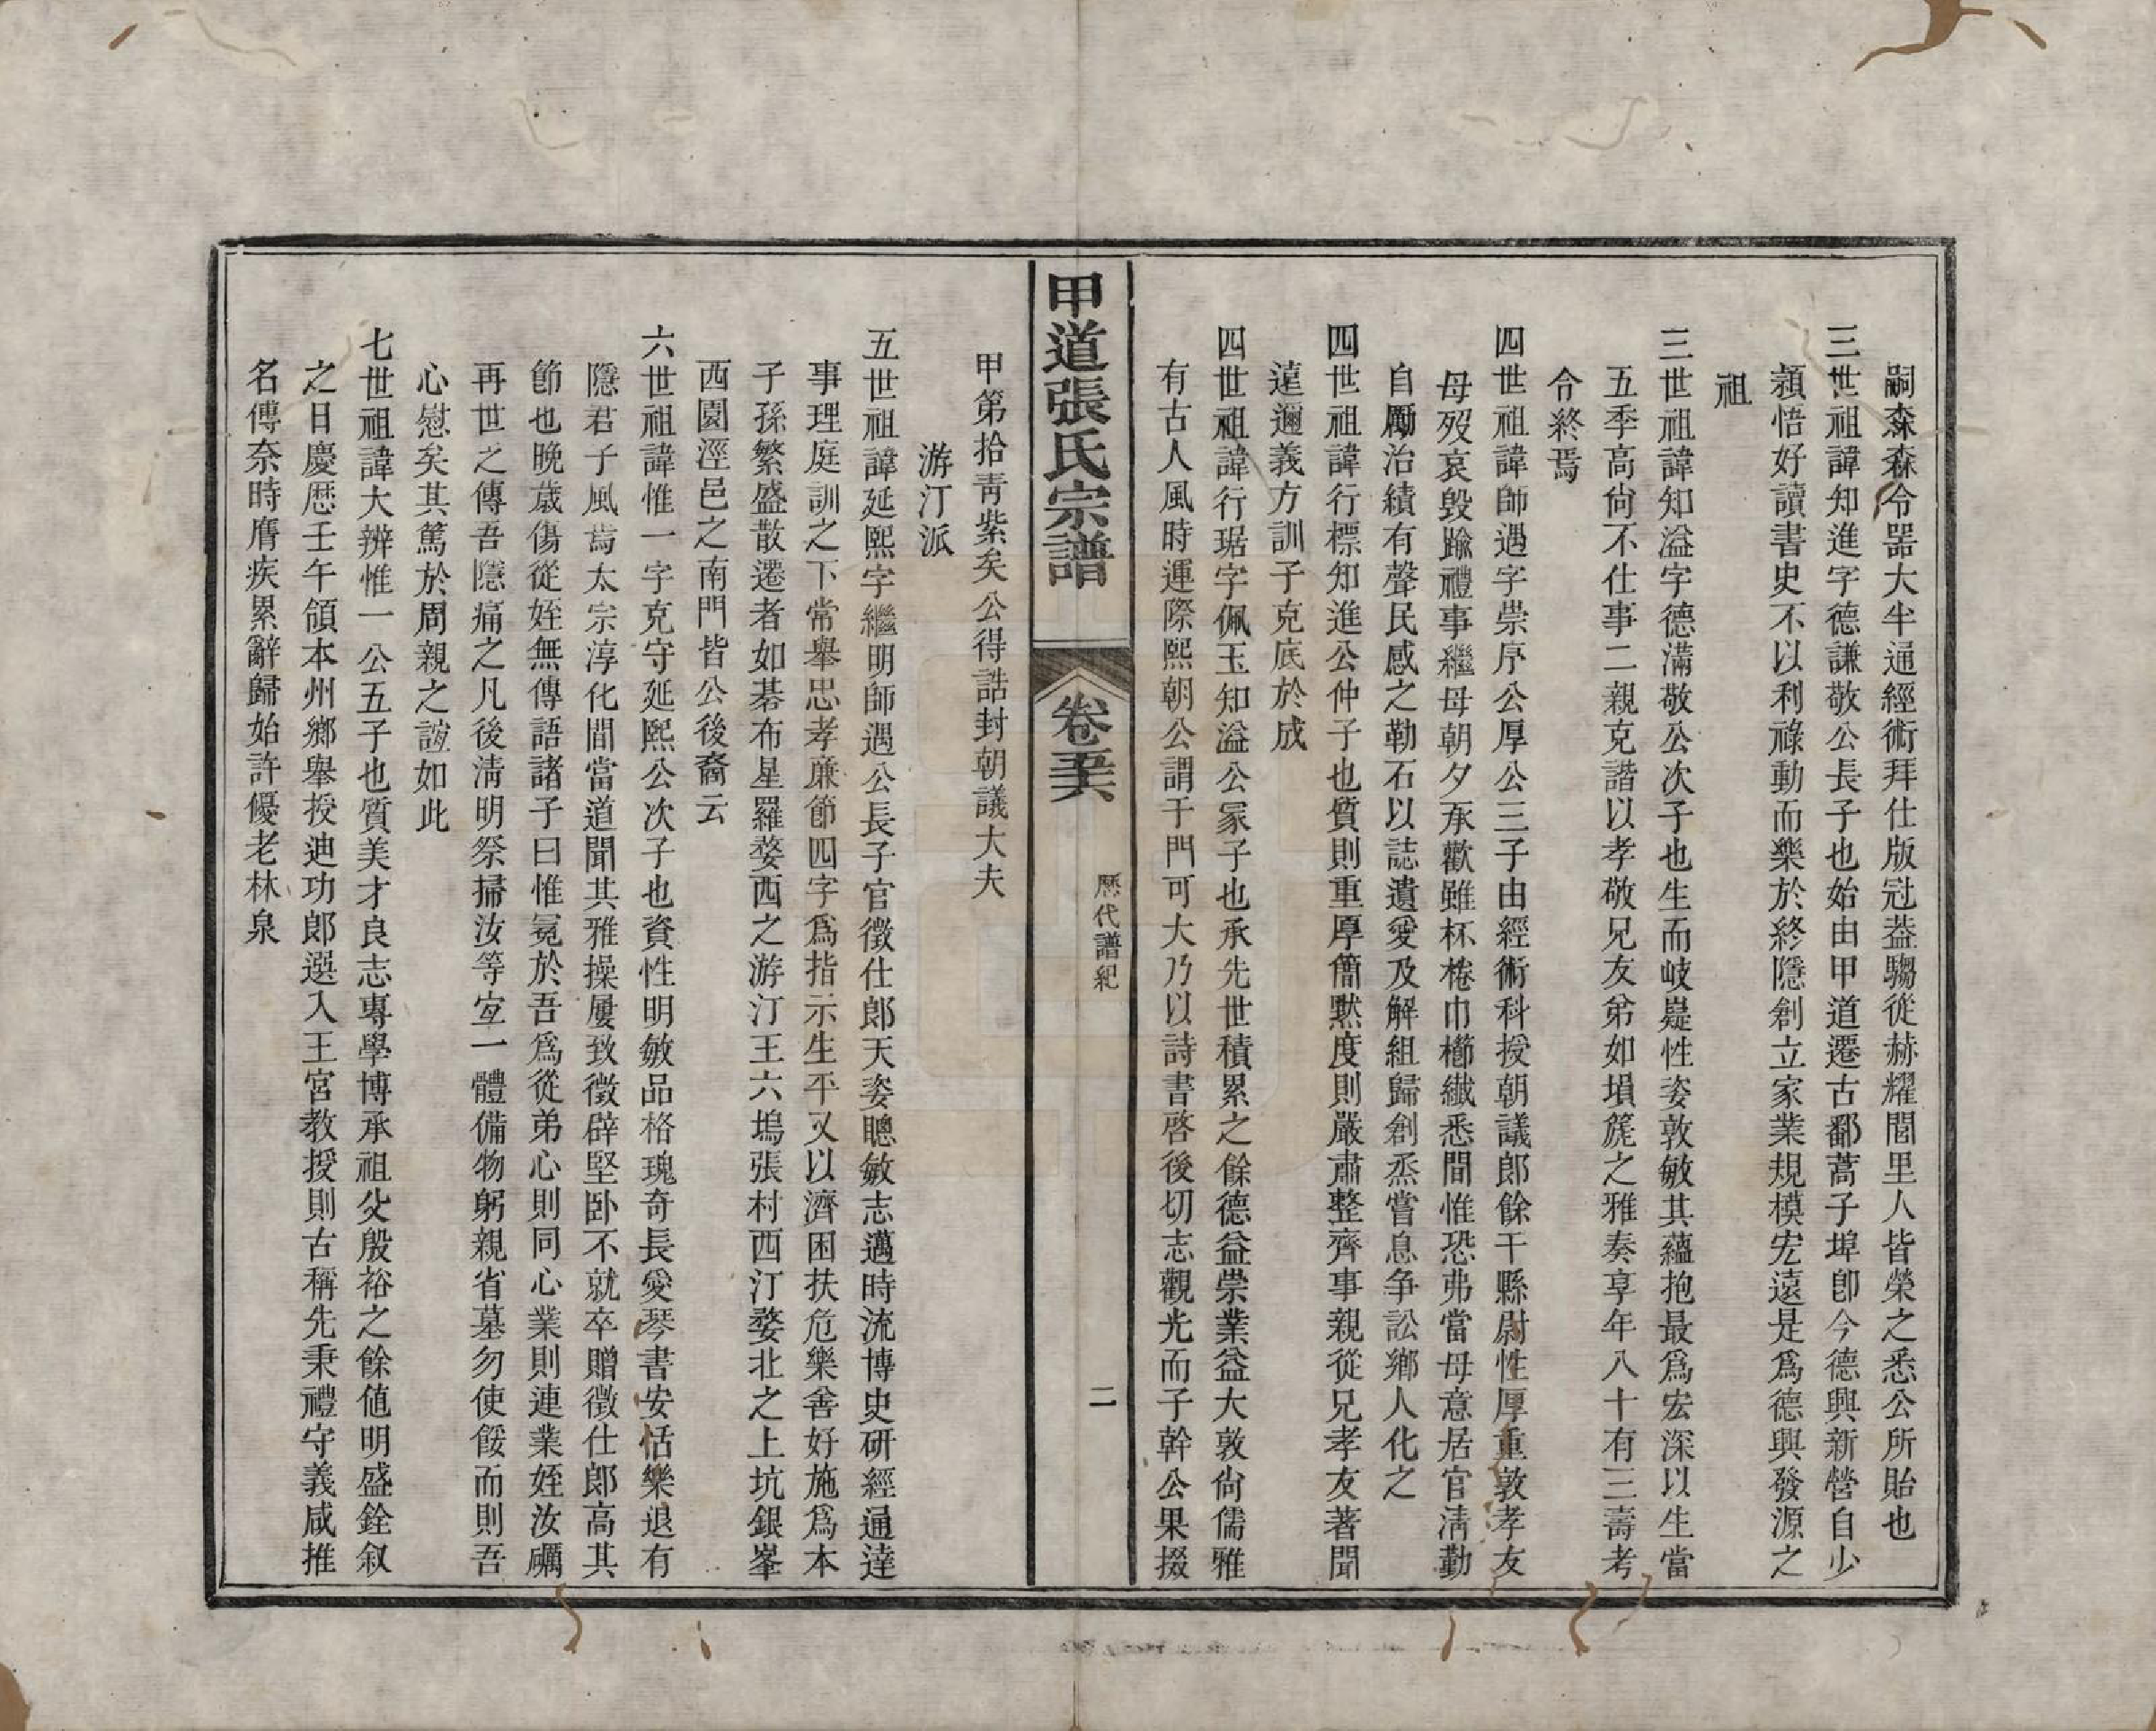 嗣森森令器大半通經術拜仕版冠葢騶從赫耀閭里人皆榮之悉公所貽也
三世祖諱知進字德謙敬公長子也始由甲道遷古鄱蒿子埠卽今德興新營自少
頴悟好讀書史不以利祿動而樂於終隱創立家業規模宏遠是爲德興發源之
祖
三世祖諱知溢字德滿敬公次子也生而岐嶷性姿敦敏其蘊抱最爲宏深以生當
五季高尙不仕事二親克諧以孝敬兄友弟如塤篪之雅奏享年八十有三壽考
令終焉
四世祖諱師遇字崇序公厚公三子由經術科授朝議郎餘干縣尉性厚重敦孝友
母歿哀毀踰禮事繼母朝夕承歡雖杯棬巾櫛纎悉間惟恐弗當母意居官淸勤
自勵治績有聲民感之勒石以誌遺愛及解組歸創烝嘗息爭訟鄕人化之
四世祖諱行標知進公仲子也質則重厚簡默度則嚴肅整齊事親從兄孝友著聞
遠邇義方訓子克底於成
四世祖諱行琚字佩玉知溢公冢子也承先世積累之餘德益崇業益大敦尙儒雅
有古人風時運際熙朝公謂于門可大乃以詩書啓後切志觀光而子幹公果掇
甲道張氏宗譜
卷五六
歷代譜紀
二
甲第拾靑紫矣公得誥封朝議大夫
游汀派
五世祖諱延熙字繼明師遇公長子官徵仕郎天姿聰敏志邁時流博史研經通達
事理庭訓之下常舉忠孝廉節四字爲指示生平又以濟困扶危樂善好施爲本
子孫繁盛散遷者如碁布星羅婺西之游汀王六塢張村西汀婺北之上坑銀峯
西園涇邑之南門皆公後裔云
六世祖諱惟一字克守延熙公次子也資性明敏品格瑰奇長愛琴書安恬樂退有
隱君子風焉太宗淳化間當道聞其雅操屢致徵辟堅卧不就卒贈徵仕郎高其
節也晚歲傷從姪無傳語諸子曰惟冕於吾爲從弟心則同心業則連業姪汝礪
再世之傳吾隱痛之凡後淸明祭掃汝等宐一體備物躬親省墓勿使餒而則吾
心慰矣其篤於周親之誼如此
七世祖諱大辨惟一公五子也質美才良志專學博承祖父殷裕之餘値明盛銓叙
之日慶厯壬午領本州鄕舉授迪功郎選入王宮教授則古稱先秉禮守義咸推
名傅奈時膺疾累辭歸始許優老林泉